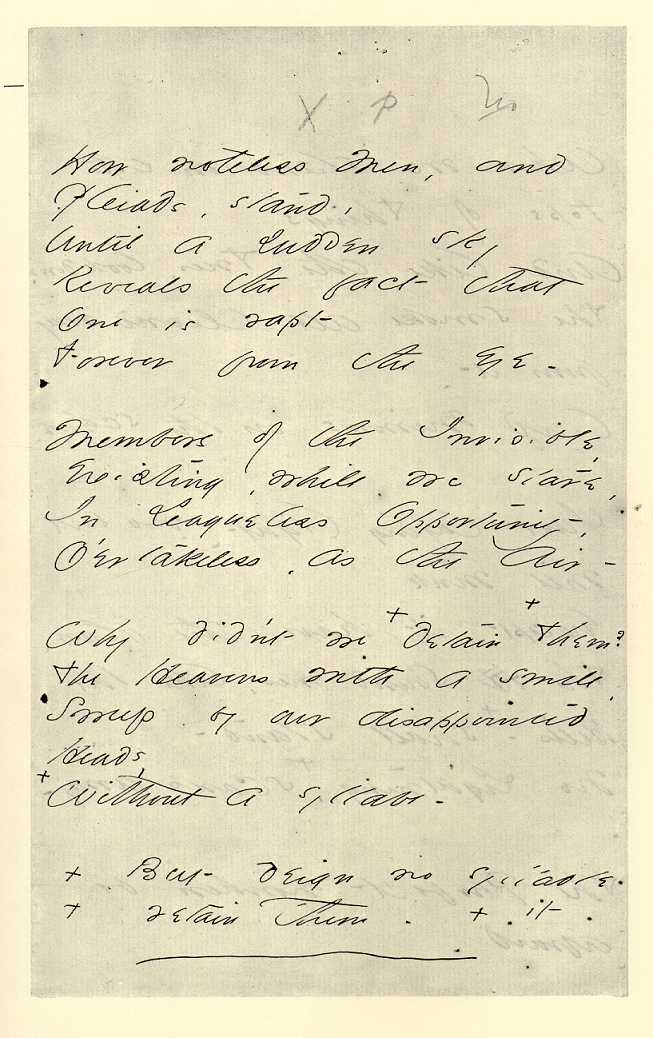 X P
How noteless Men, and
Pleiads, stand,
Until a sudden sky
Reveals the fact that
One is rapt
Forever from the Eye -
Members of the Invisible,
Existing, while we stare,
In Leagueless Opportunity,
O'ertakeless, as the Air -
Why didn't we + detain + Them?
The Heavens with a smile,
Sweep by our disappointed
Heads,
+ Without a syllable -
+ But deign no syllable -
+ retain Them . + it -